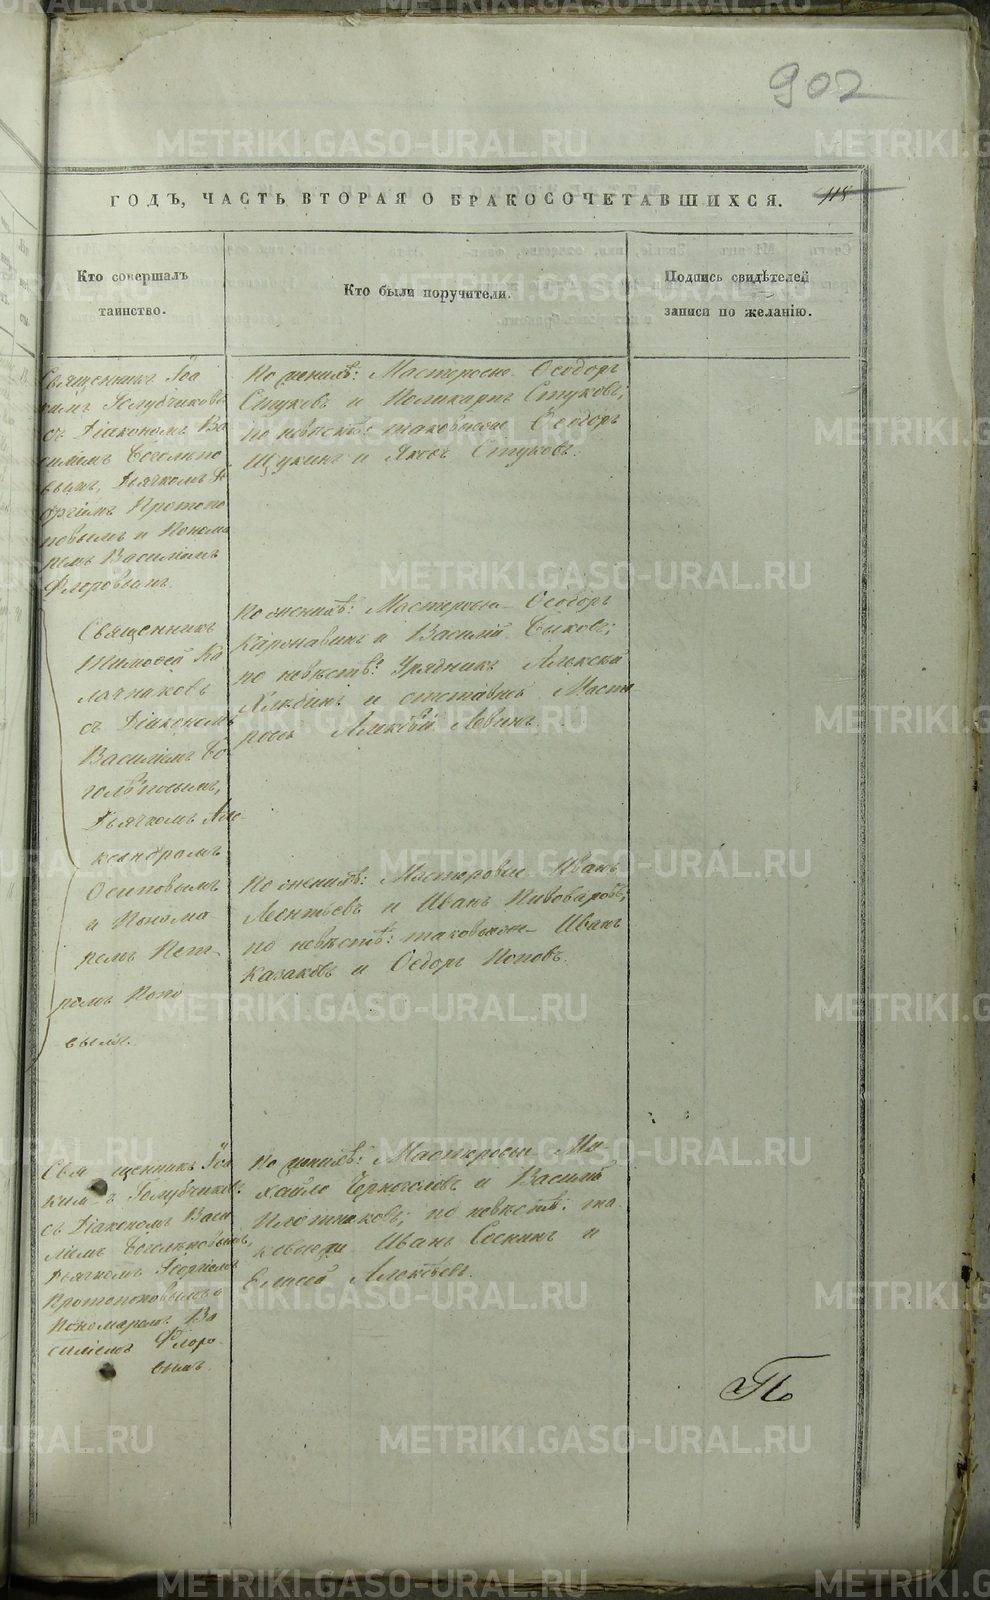 902
118
ГОДЪ, ЧАСТЬ ВТОРАЯ О БРАКОСОЧЕТАВШИХСЯ.
Кто совершалъ
таинство.
Кто были поручители.
Подпись свидѣтелей
записи по желанію.
Священникъ Іоа
кимъ Голубчиковъ
съ Діакономъ Ва
силіемъ Боголѣпо
вымъ, Дьячкомъ Ге
оргіемъ Протопо
повымъ и Понома
ремъ Василіемъ
Флоровымъ.
По женихѣ: Мастеровые Ѳеодоръ
Стуковъ и Поликарпъ Стуковъ;
по невѣстѣ: таковыеже Ѳеодоръ
Щукинъ и Яковъ Стуковъ.
Священникъ
Тимоѳей Ка
лачниковъ
съ Діакономъ
Василіемъ Бо
голѣповымъ,
Дьячкомъ Але
ксандромъ
Осиповымъ
и Понома
ремъ Пет
ромъ Попо
вымъ.
По женихѣ: Мастеровые Ѳеодоръ
и Василій Быковъ;
по невѣстѣ: Урядникъ Алексѣй
и отставной Масте
ровой Алексѣй
По женихѣ: Мастеровые Иванъ
Леонтьевъ и Иванъ Пивоваровъ;
по невѣстѣ: таковыеже Иванъ
Казаковъ и Ѳедоръ Поповъ.
Священникъ Іоа
кимъ Голубчиковъ
съ Діакономъ Васи
ліемъ Боголѣповымъ,
Дьячкомъ Георгіемъ
Протопоповымъ и
Пономаремъ Ва
силіемъ Флоро
вымъ.
По женихѣ: Мастеровые Ми
хайло Черноголовъ и Василій
Плотниковъ; по невѣстѣ: та
ковыеже Иванъ Соснинъ и
Елисей
П
METRIKI.GASO-URAL.RU